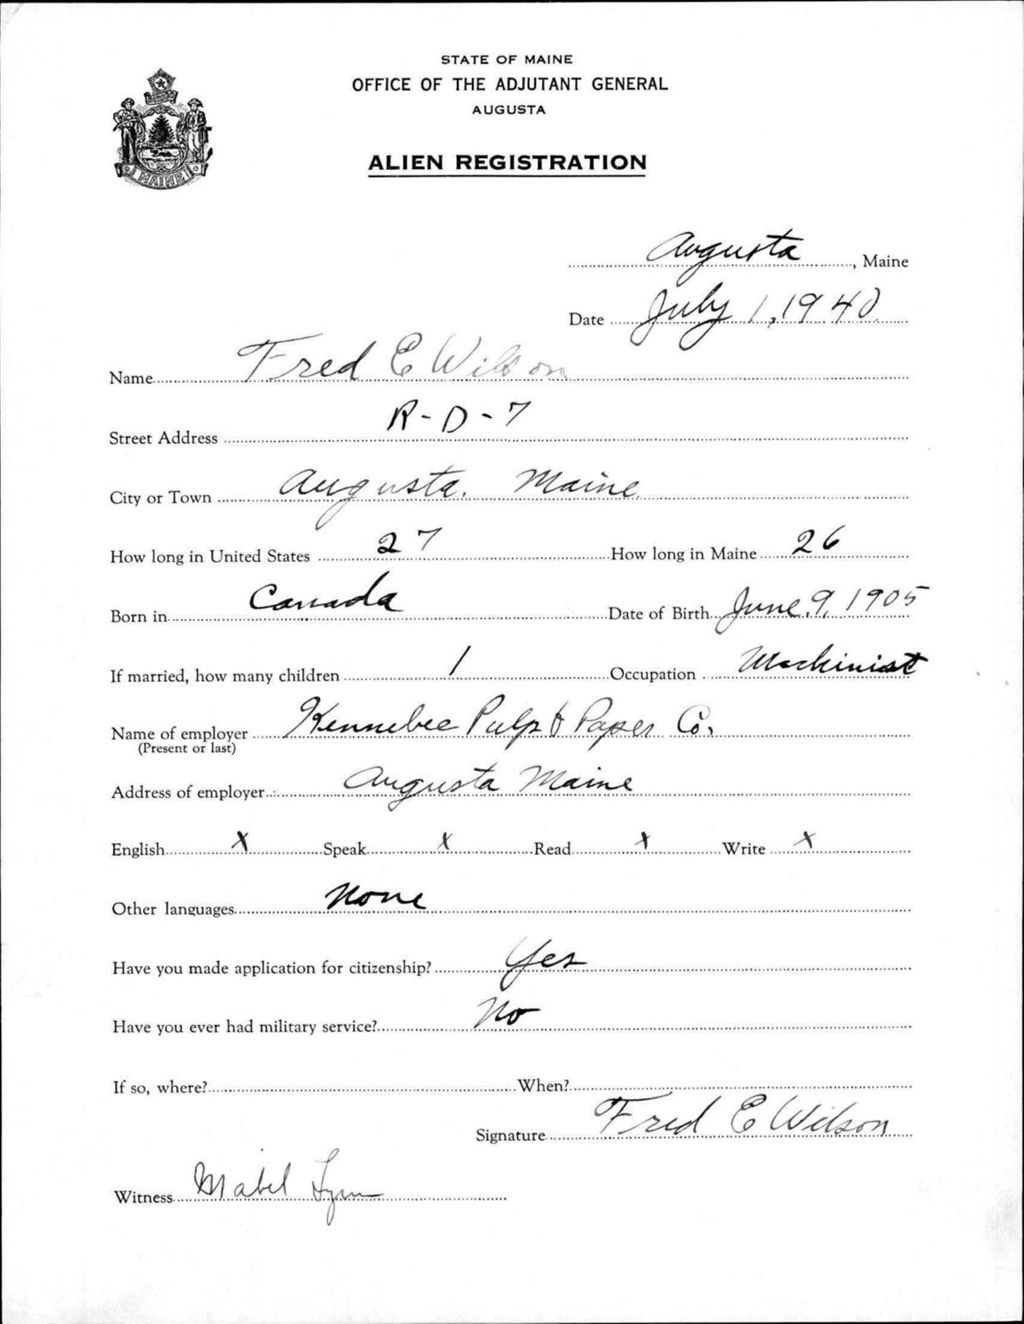 STATE OF MAINE
OFFICE OF THE ADJUTANT GENERAL
AUGUSTA
ALIEN REGISTRATION
MAINE
Augusta, Maine
Date July 1, 1940
Name Fred E Wilson
Street Address R-D-7
City or Town Augusta, Maine
How long in United States 27 How long in Maine 26
Born in Canada Date of Birth June, 9, 1905
If married, how many children 1 Occupation Machinist
Name of employer Kennebec Pulp & Paper Co.
(Present or last)
Address of employer Augusta Maine
English X Speak X Read X Write X
Other languages None
Have you made application for citizenship? Yes
Have you ever had military service? No
If so, where? When?
Signature Fred E Wilson
Witness Mabel Lynn